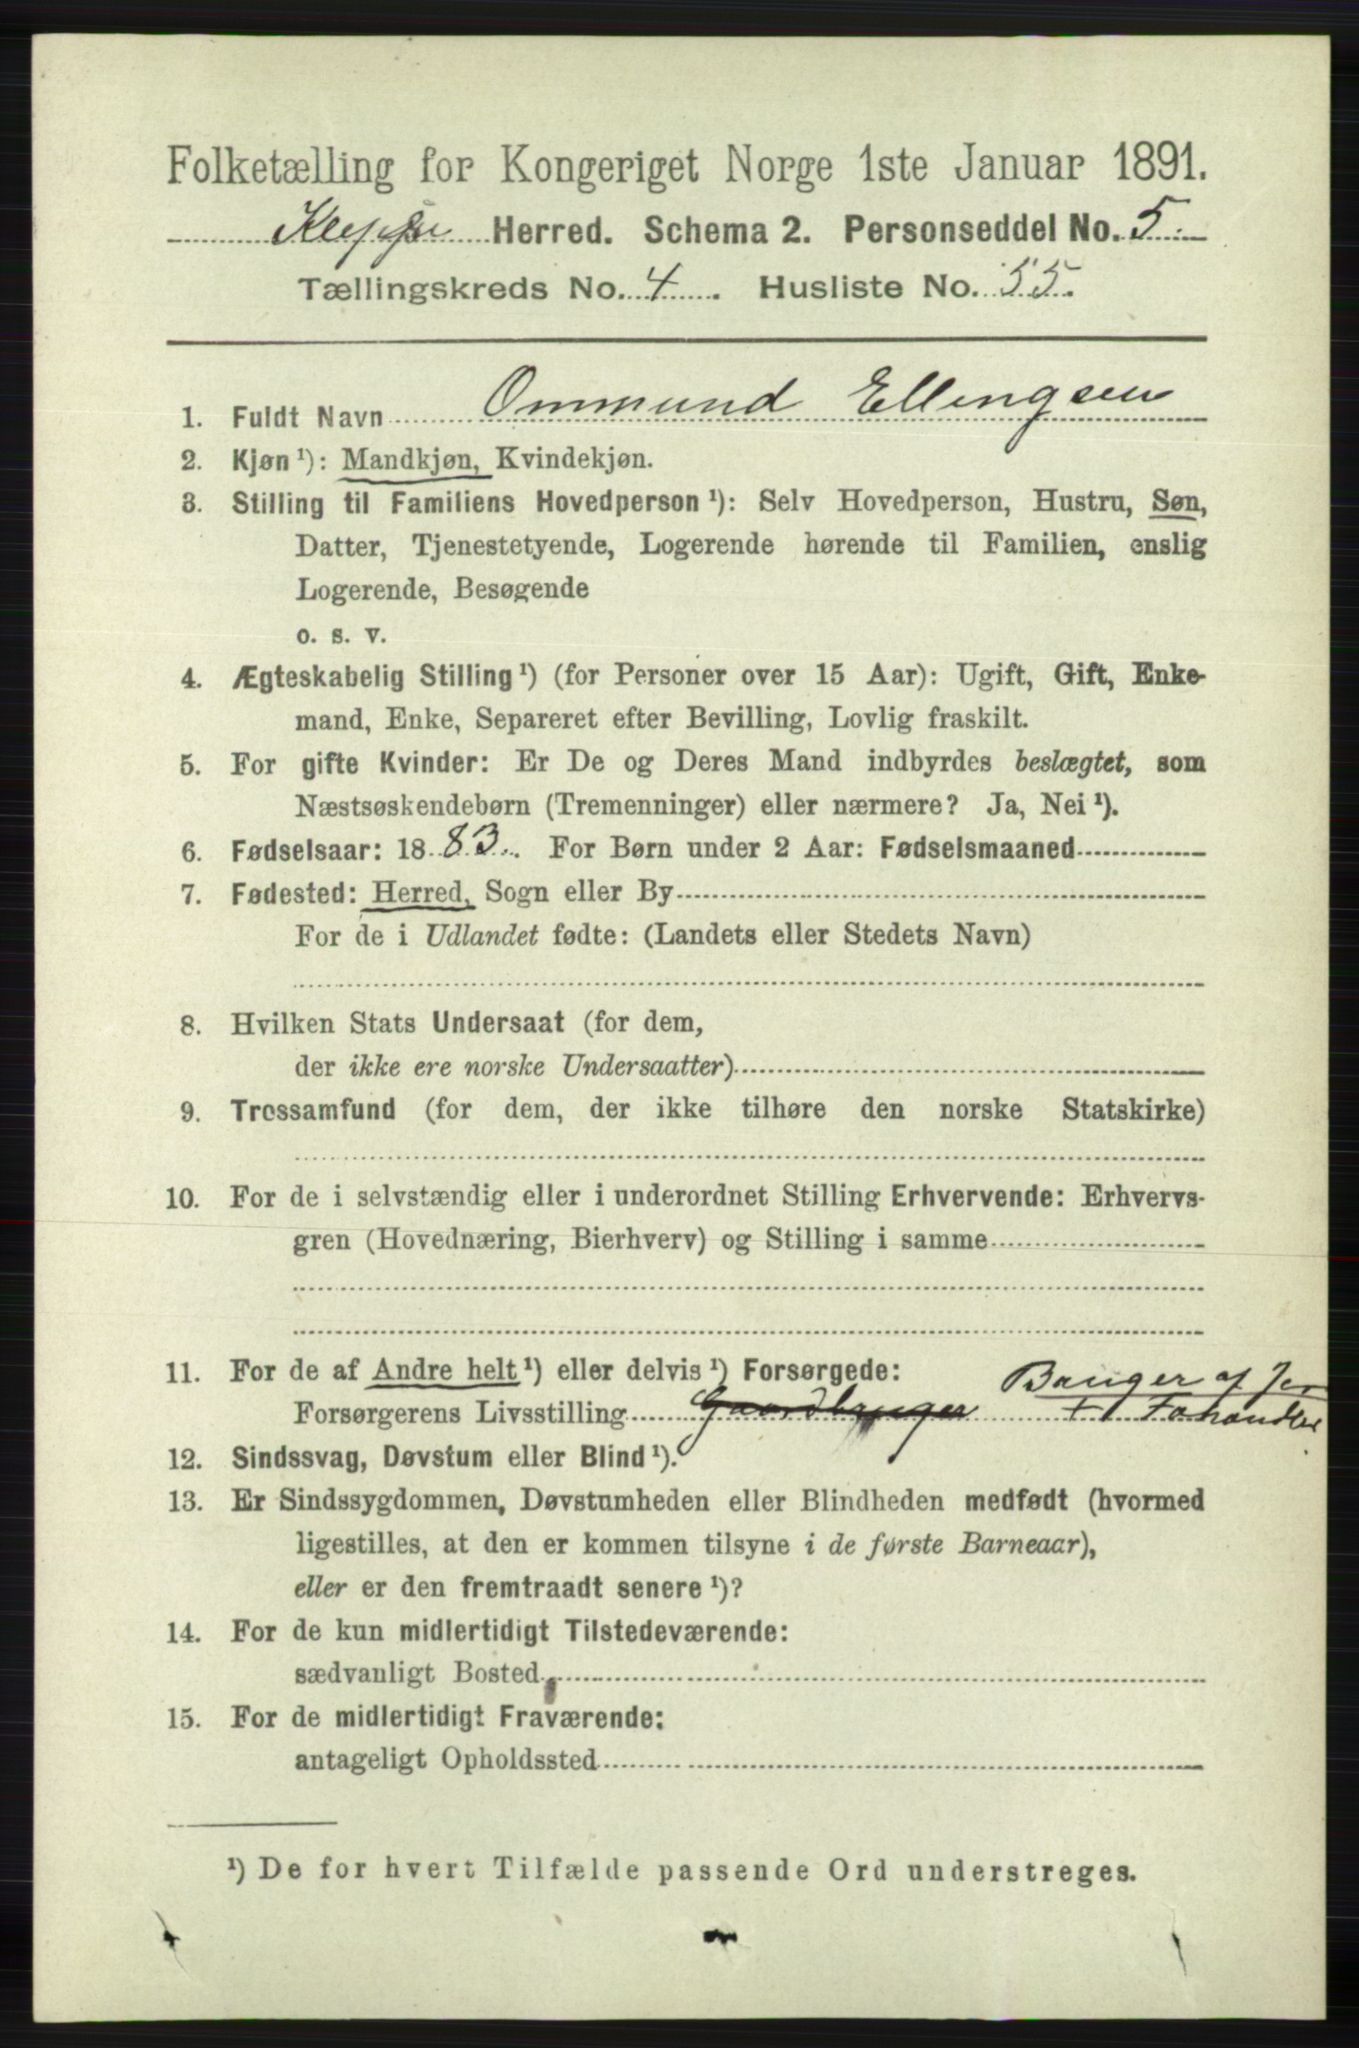 Folketælling for Kongeriget Norge 1ste Januar 1891.
Kleppe Herred. Schema 2. Personseddel No. 5.
Tællingskreds No. 4. Husliste No. 55.
1. Fuldt Navn Ommund Ellingsen
2. Kjøn ¹): Mandkjøn, Kvindekjøn.
3. Stilling til Familiens Hovedperson ¹): Selv Hovedperson, Hustru, Søn,
Datter, Tjenestetyende, Logerende hørende til Familien, enslig
Logerende, Besøgende
o. s. v.
4. Ægteskabelig Stilling ¹) (for Personer over 15 Aar): Ugift, Gift, Enke-
mand, Enke, Separeret efter Bevilling, Lovlig fraskilt.
5. For gifte Kvinder: Er De og Deres Mand indbyrdes beslægtet, som
Næstsøskendebørn (Tremenninger) eller nærmere? Ja, Nei ¹).
6. Fødselsaar: 1883. For Børn under 2 Aar: Fødselsmaaned
7. Fødested: Herred, Sogn eller By
For de i Udlandet fødte: (Landets eller Stedets Navn)
8. Hvilken Stats Undersaat (for dem,
der ikke ere norske Undersaatter)
9. Trossamfund (for dem, der ikke tilhøre den norske Statskirke)
10. For de i selvstændig eller i underordnet Stilling Erhvervende: Erhvervs-
gren (Hovednæring, Bierhverv) og Stilling i samme
11. For de af Andre helt ¹) eller delvis ¹) Forsørgede:
Bruger af Jor
Forsørgerens Livsstilling Gaardbruger + Fahandler
12. Sindssvag, Døvstum eller Blind ¹).
13. Er Sindssygdommen, Døvstumheden eller Blindheden medfødt (hvormed
ligestilles, at den er kommen tilsyne i de første Barneaar),
eller er den fremtraadt senere ¹)?
14. For de kun midlertidigt Tilstedeværende:
sædvanligt Bosted
15. For de midlertidigt Fraværende:
antageligt Opholdssted
¹) De for hvert Tilfælde passende Ord understreges.